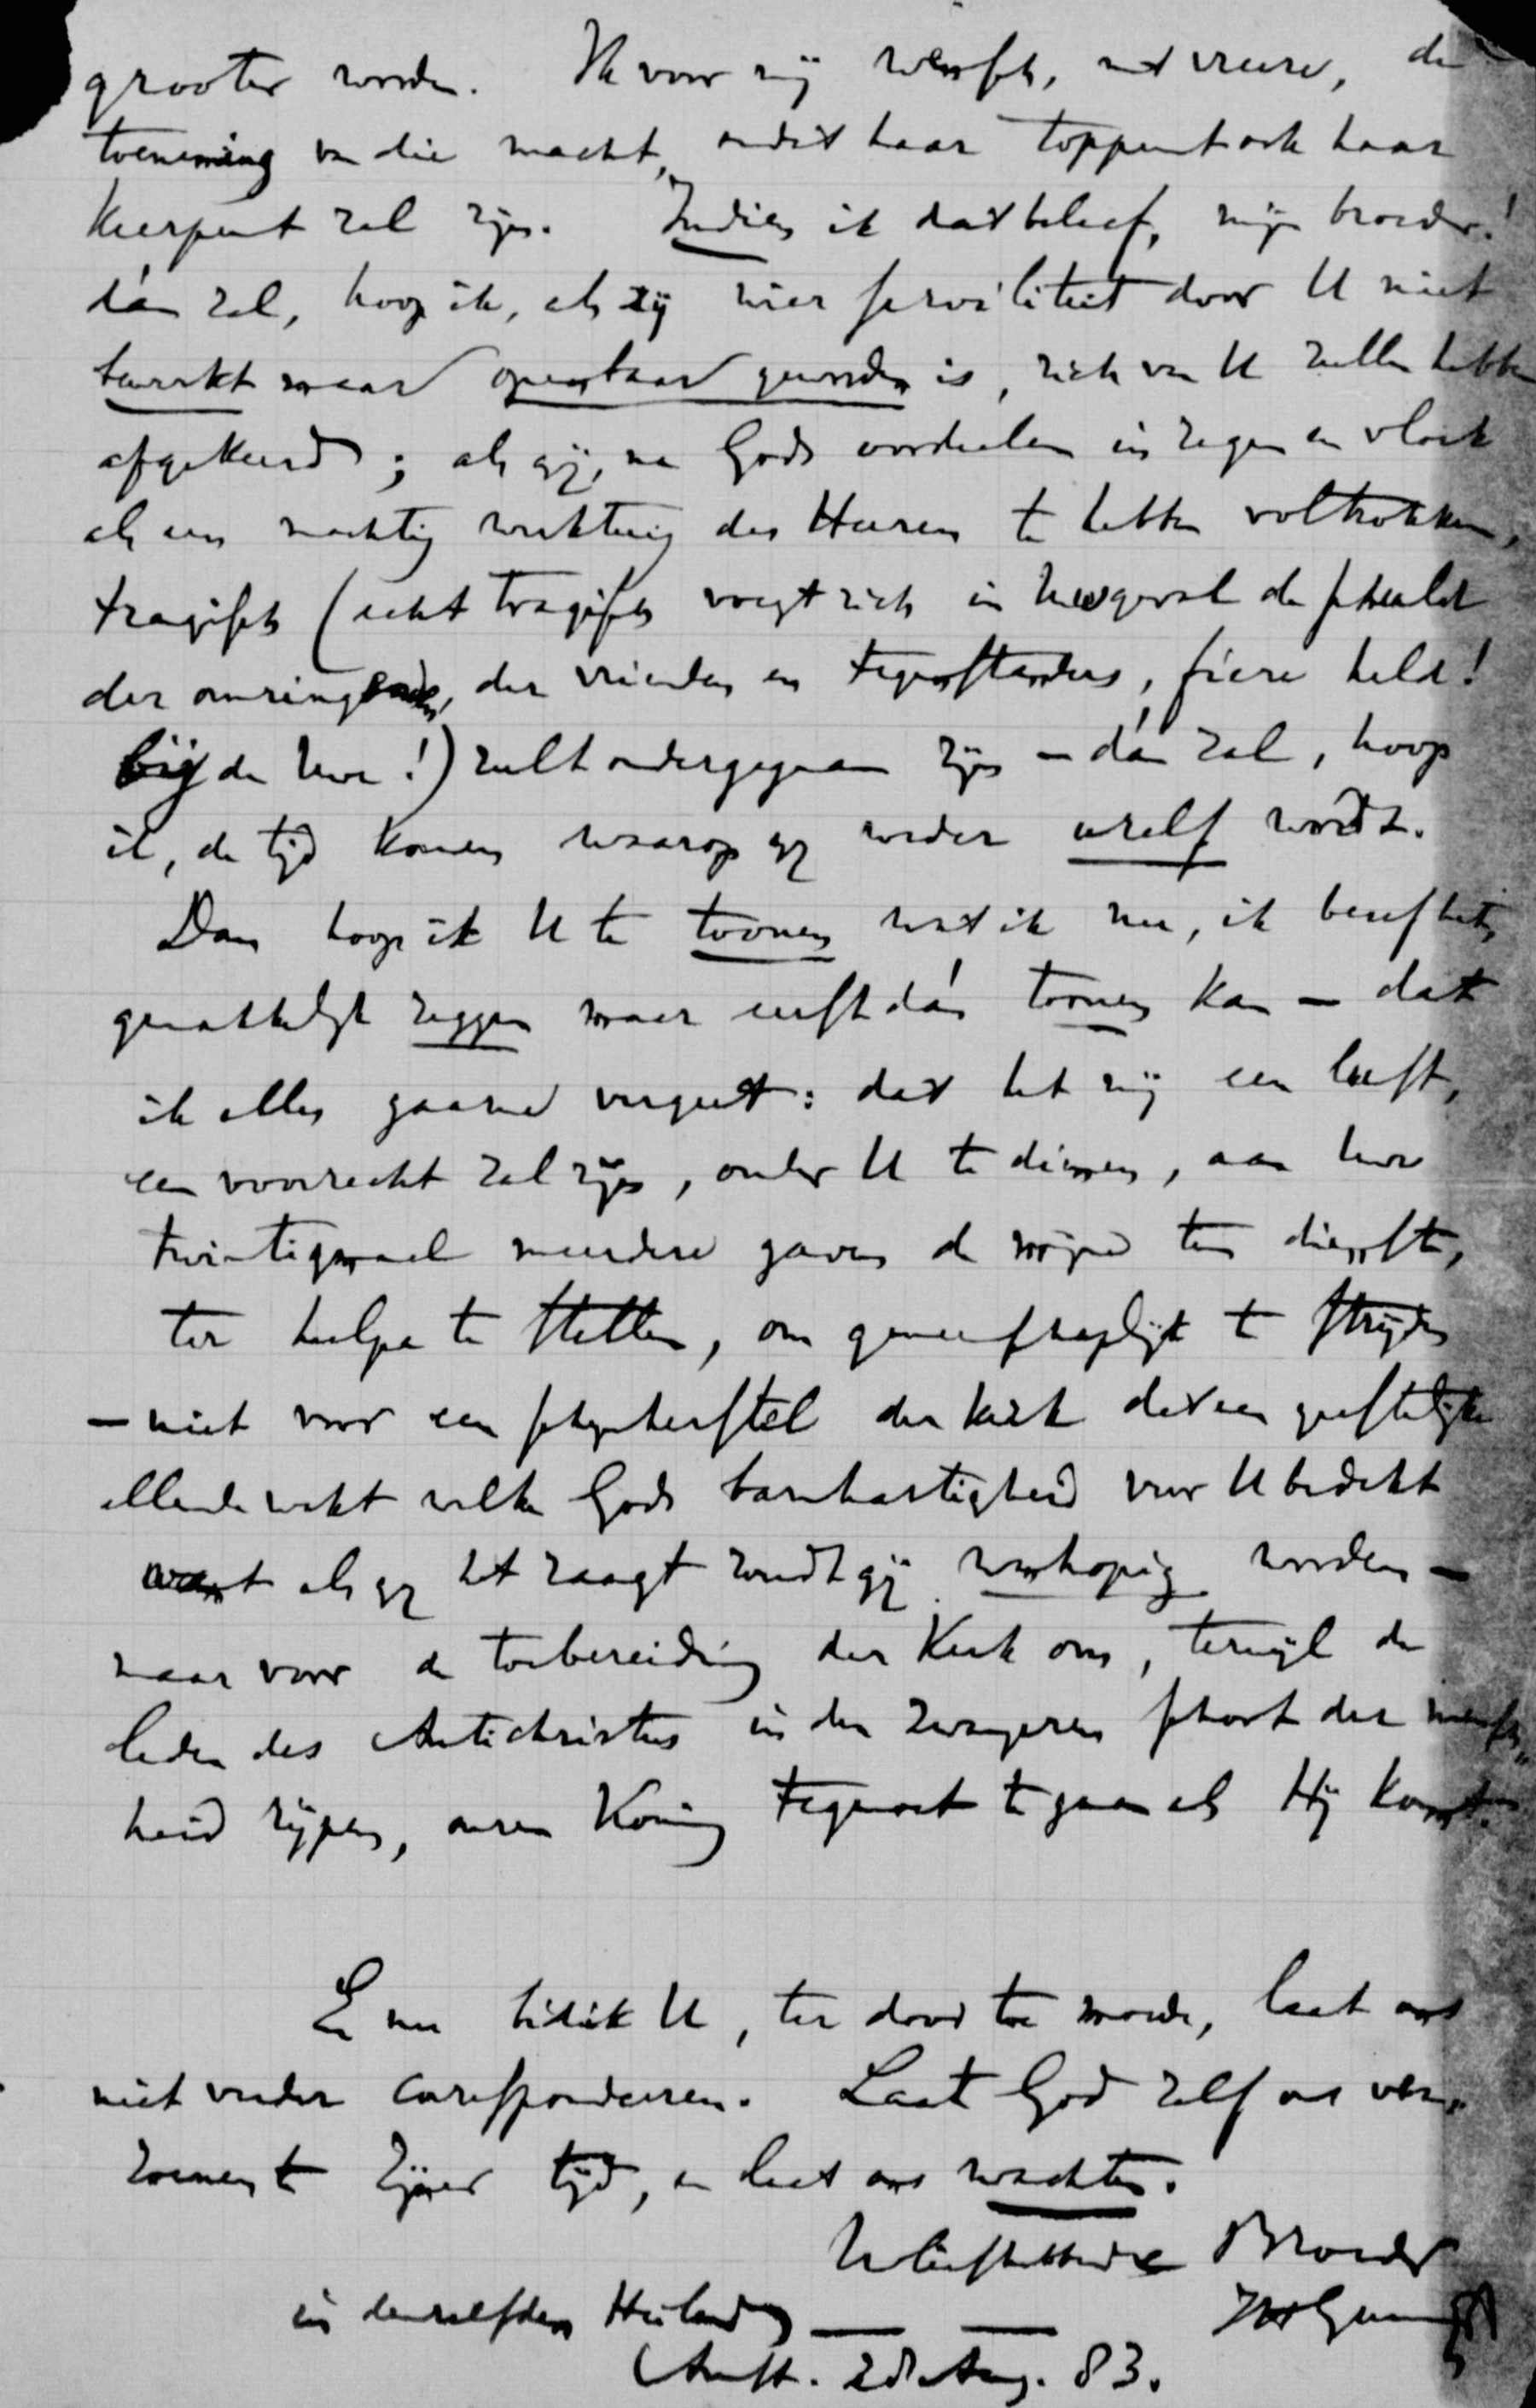 grooter worden. Ik voor mij wensch, met vreeze, de
toeneming van die macht, omdat haar toppunt ook haar
keerpunt zal zijn. Indien ik dat beleef, mijn broeder!
dán zal, hoop ik, als zij wier serviliteit door U niet
bewerkt maar openbaar geworden is, zich van U zullen hebben
afgekeerd; als gij, na Gods oordeelen in zegen en vloek
als een machtig werktuig des Heeren te hebben voltrokken,
tragisch (echt tragisch voegt zich in Uw geval de schuld
der omringenden, der vrienden en tegenstanders, fiere held!
bij de Uwe!) zult ondergegaan zijn — dán zal, hoop
ik, de tijd komen waarop gij weder uzelf wordt.
Dan hoop ik U te toonen wat ik nu, ik besef het,
gemakkelijk zeggen maar eerst dán toonen kan — dat
ik alles gaarne vergeet: dat het mij een lust,
een voorrecht zal zijn, onder U te dienen, aan Uwe
twintigmaal meerdere gaven de mijne ten dienste,
ter hulpe te stellen, om gemeenschaplijk te strijden
— niet voor een schijnherstel der kerk dat een geestelijke
ellende wekt welke Gods barmhartigheid voor U bedekt
want als gij het zaagt zoudt gij wanhopig worden —
maar voor de toebereiding der Kerk om, terwijl de
leden des Antichristus in den zwangeren schoot der mensch„
heid rijpen, onzen Koning tegemoet te gaan als Hij komt.
En nu bid ik U, ter dood toe moede, laat ons
niet verder corresponderen. Laat God zelf ons ver„
zoenen te Zijner tijd, en laat ons wachten.
Uw liefhebbende Broeder
in denzelfden Heiland
Amst. 28 Aug. 83.